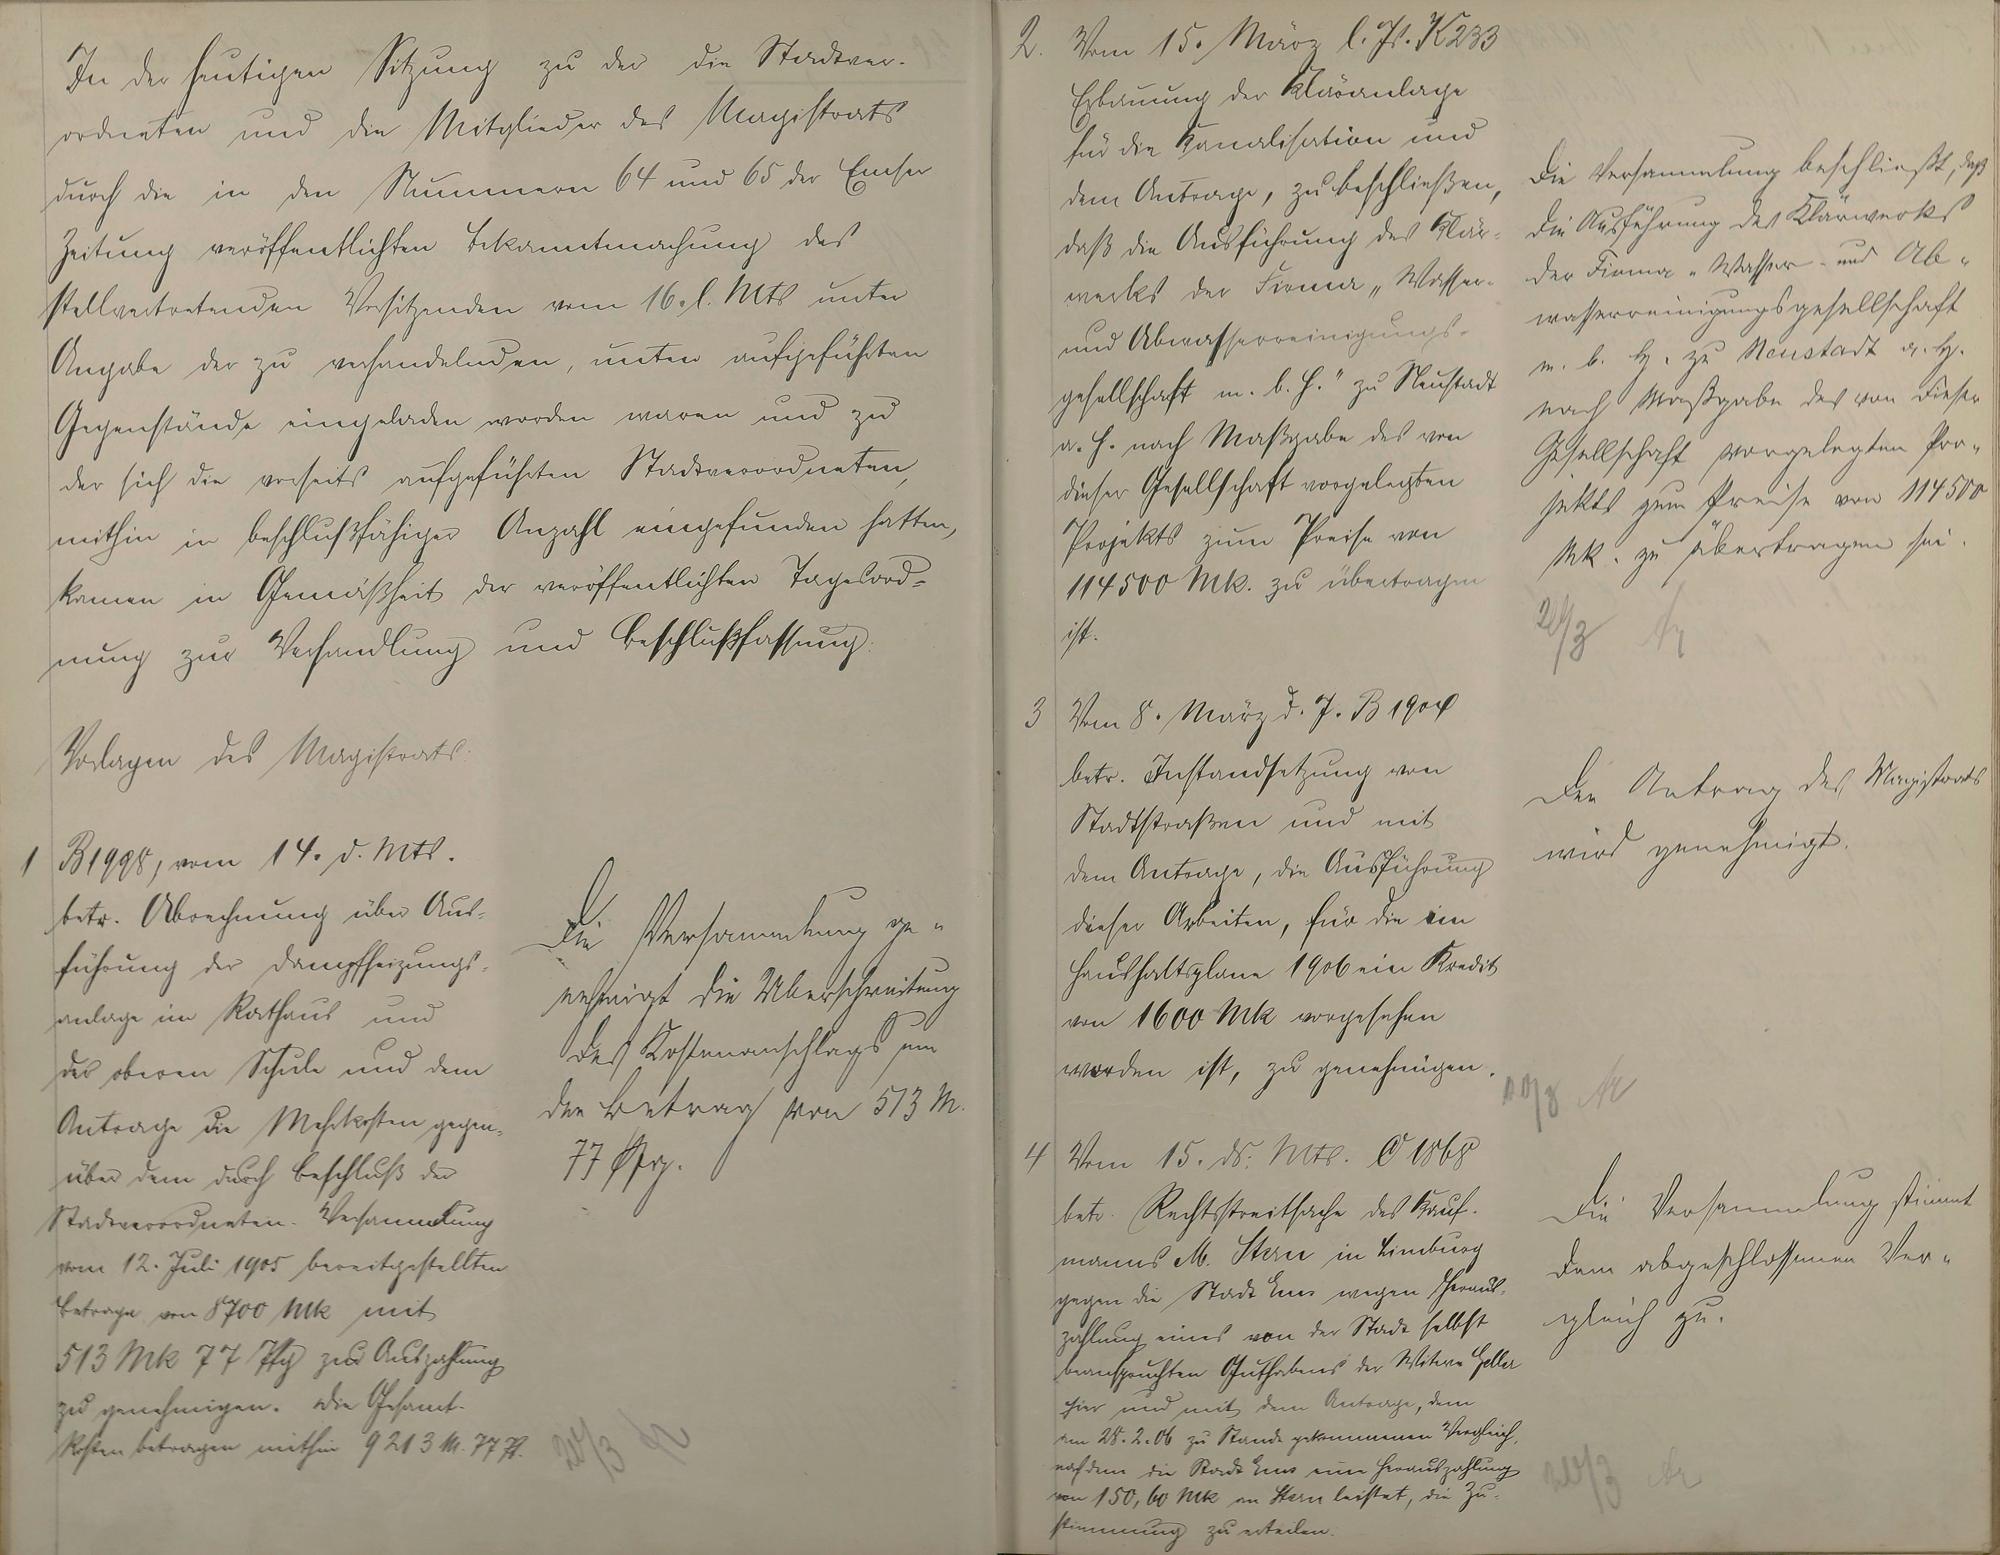 In der heutigen Sitzung zu der die Stadtver-
ordneten und die Mitglieder des Magistrats
durch die in den Nummern 64 und 65 der Emser
Zeitung veröffentlichten Bekanntmachung des
stellvertretenden Vorsitzenden vom 16. l. Mts unter
Angabe der zu verhandelnden, unten aufgeführten
Gegenstände eingeladen worden waren und zu
der sich die vorseits aufgeführten Stadtverordneten,
mithin in beschlußfähiger Anzahl eingefunden hatten,
kamen in Gemäßheit der veröffentlichten Tagesord-
nung zur Verhandlung und Beschlußfassung:
Vorlagen des Magistrats:
1 B1998, vom 14. d. Mts.
betr. Abrechnung über Aus-
führung der Dampfheizungs-
anlage im Rathaus und
der oberen Schule und dem
Antrage die Mehrkosten gegen-
über dem durch Beschluß der
Stadtverordneten-Versammlung
vom 12. Juli 1905 bereitgestellten
Betrage von 8700 Mk mit
513 Mk 77 Pfg zur Auszahlung
zu genehmigen. Die Gesamt-
kosten betragen mithin 9213 M. 77 Pf.
Die Versammlung ge-
nehmigt die Überschreitung
des Kostenanschlags um
den Betrag von 513 M.
77 Pfg.
20/3
2. Vom 15. März l. Js. K233
Erbauung der Kläranlage
für die Kanalisation und
dem Antrage, zu beschließen,
daß die Ausführung des Klär-
werks der Firma „Wasser-
und Abwasserreinigungs-
gesellschaft m. b. H." zu Neustadt
a. H. nach Maßgabe des von
dieser Gesellschaft vorgelegten
Projekts zum Preise von
114500 Mk. zu übertragen
ist.
Die Versammlung beschließt, daß
die Ausführung des Klärwerks
der Firma „Wasser- und Ab-
wasserreinigungsgesellschaft
m. b. H. zu Neustadt a. H.
nach Maßgabe des von dieser
Gesellschaft vorgelegten Pro-
jekts zum Preise von 114500
Mk. zu übertragen sei.
20/3
3 Vom 8. März d. J. B 1904
betr. Instandsetzung von
Stadtstraßen und mit
dem Antrage, die Ausführung
dieser Arbeiten, für die im
Haushaltsplane 1906 ein Kredit
von 1600 Mk vorgesehen
worden ist, zu genehmigen.
Der Antrag des Magistrats
wird genehmigt.
20/3
4 Vom 15. ds. Mts. C 1868
betr. Rechtsstreitsache des Kauf-
manns M. Stern in Limburg
gegen die Stadt Ems wegen Heraus-
zahlung eines von der Stadt selbst
beanspruchten Guthabens der Witwe
hier und mit dem Antrage, dem
am 28.2.06 zu Stande gekommenen Vergleich,
nachdem die Stadt Ems eine Herauszahlung
von 150,60 Mk an Stern leistet, die Zu-
stimmung zu erteilen.
Die Versammlung stimmt
dem abgeschlossenen Ver-
gleich zu.
20/3